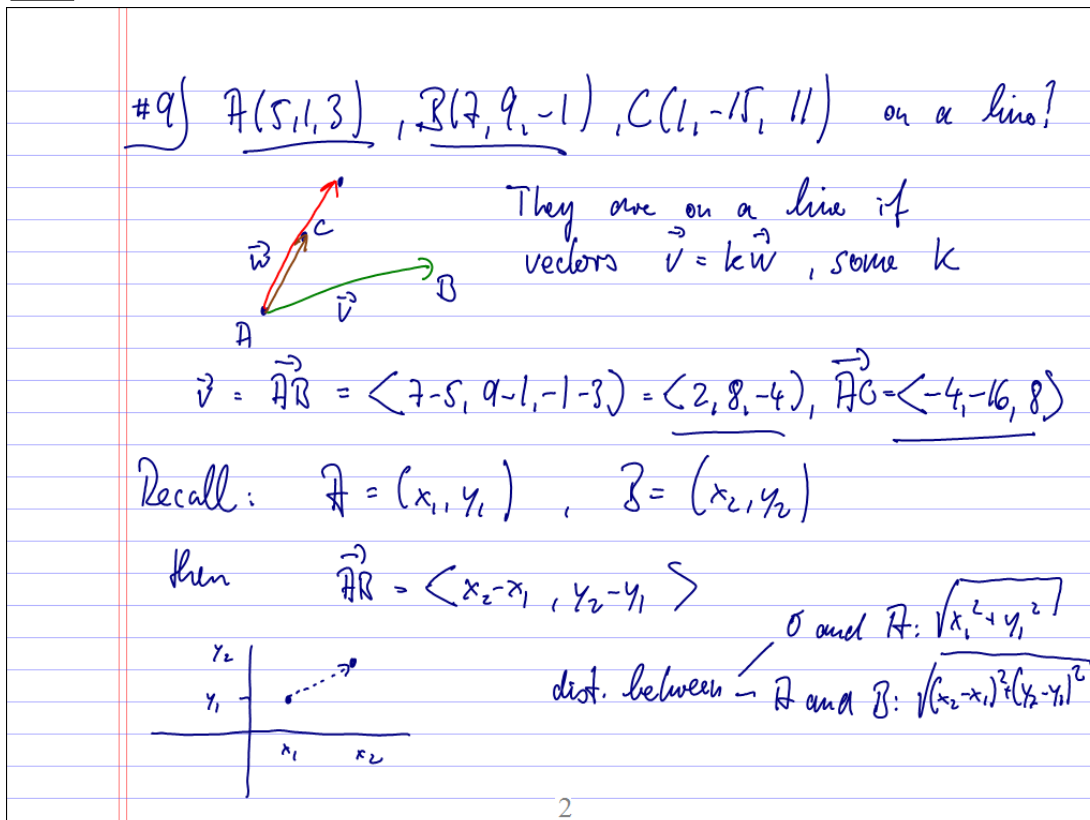 #9) A(5,1,3) , B(7, 9, -1) , C(1, -15, 11) on a line?
They are on a line if
vectors v⃗ = kw⃗ , some k
C
w⃗
B
v⃗
A
v⃗ = AB⃗ = <7-5, 9-1, -1-3> = <2, 8, -4>, AC⃗ = <-4, -16, 8>
Recall: A = (x₁, y₁) , B = (x₂, y₂)
then AB⃗ = <x₂-x₁ , y₂-y₁>
dist. between
0 and A: √(x₁² + y₁²)
A and B: √((x₂-x₁)² + (y₂-y₁)²)
y₂
y₁
x₁ x₂
2